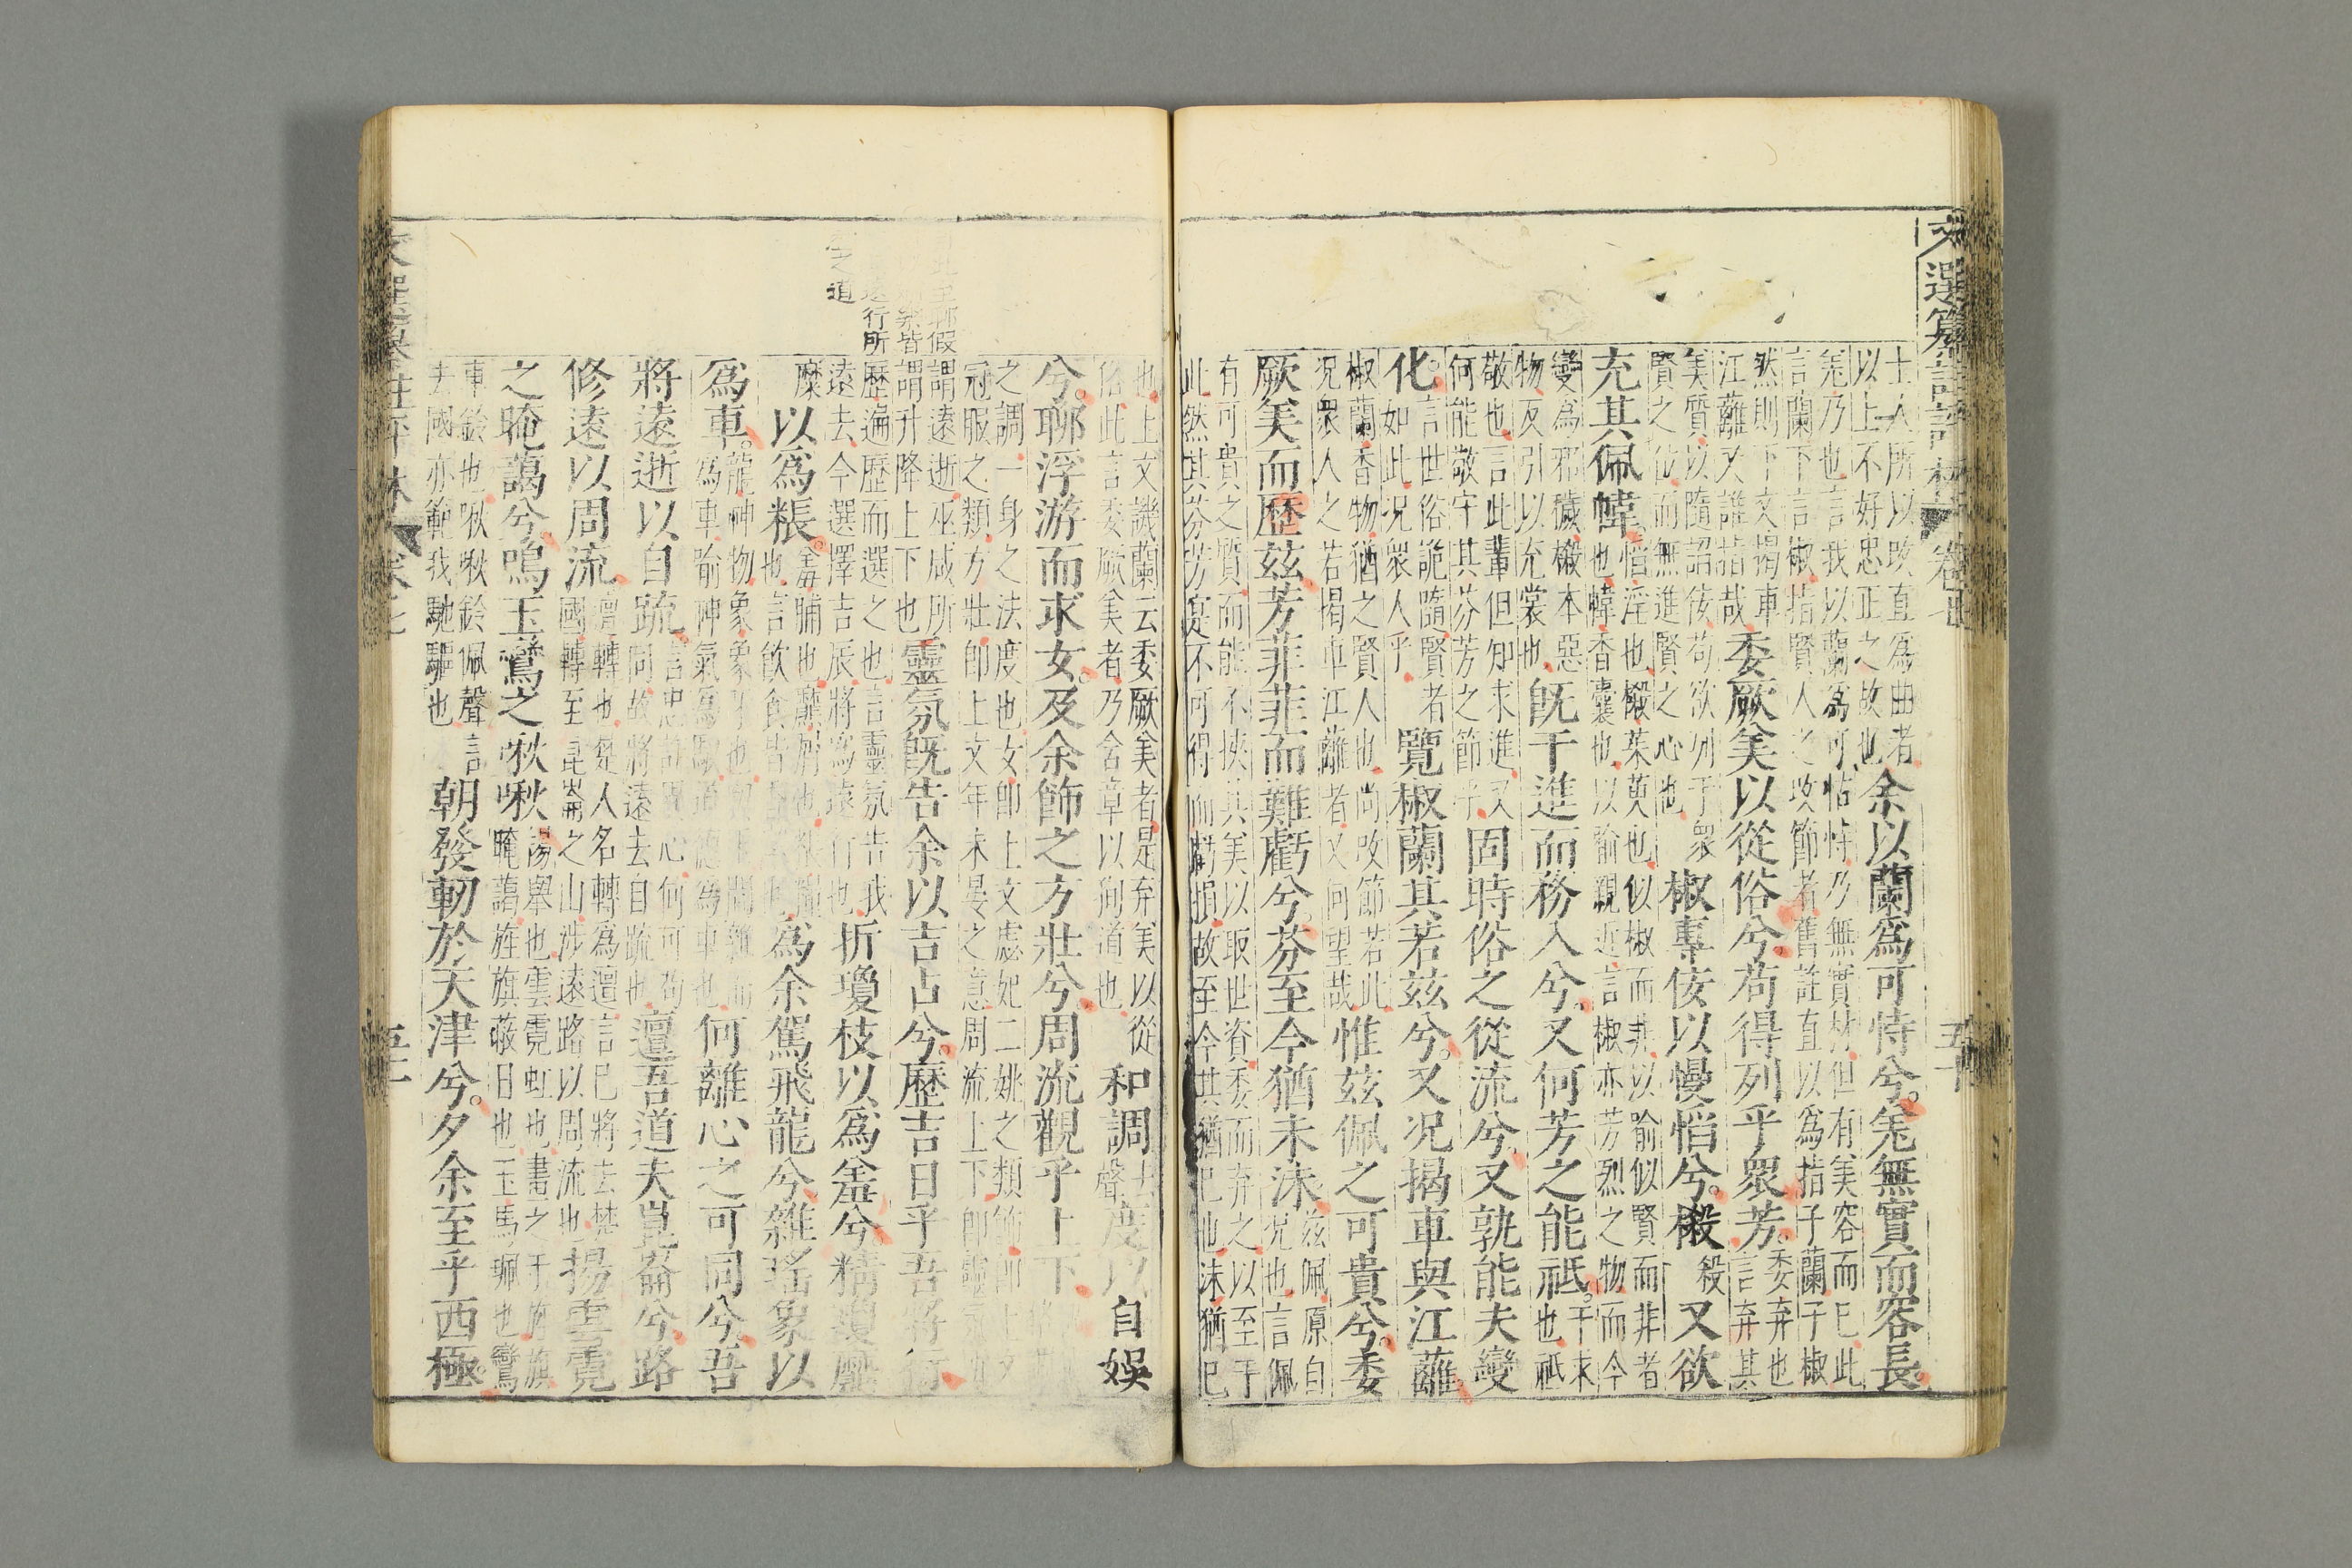 文選纂註評林 卷七 五十
士人所以改直為曲者
以上不好忠正之故也
余以蘭為可恃兮。羌無實而容長。
羌乃也言我以蘭為可怙恃乃無實材但有美容而已此
言蘭下言椒指賢人之改節者舊註直以為指子蘭子椒
然則下文揭車
江蘺又誰指哉
委厥美以從俗兮。苟得列乎眾芳。
委弃也言弃其
美質以隨諂佞苟欲列于眾
賢之位而無進賢之心也
椒專佞以慢慆兮。樧
殺
又欲
充其佩幃。
慆淫也樧茱萸也似椒而非以喻似賢而非者
也幃香囊也以喻親近言椒亦芳烈之物而今
變為邪穢樧本惡
物反引以充裳也
既干進而務入兮。又何芳之能祇。
干求也祇
敬也言此輩但知求進又
何能敬守其芬芳之節乎
固時俗之從流兮。又孰能夫變
化。
言世俗詭隨賢者
如此況眾人乎
覽椒蘭其若茲兮。又況揭車與江蘺
椒蘭香物猶之賢人也尚改節若此
況眾人之若揭車江蘺者又何望哉
惟茲佩之可貴兮。委
厥美而歷茲芳菲菲而難虧兮。芬至今猶未沬
茲佩原自
況也言佩
有可貴之質而能不挾其美以取世資委而弃之以至于
此然其芬芳實不可得而虧損故至今其猶已也沬猶已
也上文譏蘭云委厥美者是弃美以從
俗此言委厥美者乃舍章以徇道也
和調
去聲
度以自娛
兮。聊浮游而求女。及余飾之方壯兮。周流觀乎上下
之調一身之法度也女即上文虙妃二姚之類飾即上文
冠服之類方壯即上文年未晏之意周流上下即靈氛所
謂遠逝巫咸所
謂升降上下也
靈氛既告余以吉占兮。歷吉日乎吾將行
歷遍歷而選之也言靈氛告我
遠去今選擇吉辰將為遠行也
折瓊枝以為羞兮。精瓊爢
糜
以為粻。
為余駕飛龍兮。雜瑤象以
為車。
何離心之可同兮。吾
將遠逝以自疏
邅吾道夫崑崙兮。路
修遠以周流
邅轉也楚人名轉為邅言已將去楚
國轉至崑崙之山涉遠路以周流也
揚雲霓
之晻藹兮。鳴玉鸞之啾啾
揚舉也雲霓虹也畫之于旌旗
晻藹旌旗蔽日也玉馬珮也鸞
車鈴也啾啾鈴佩聲言
去國亦範我馳驅也
朝發軔於天津兮。夕余至乎西極。